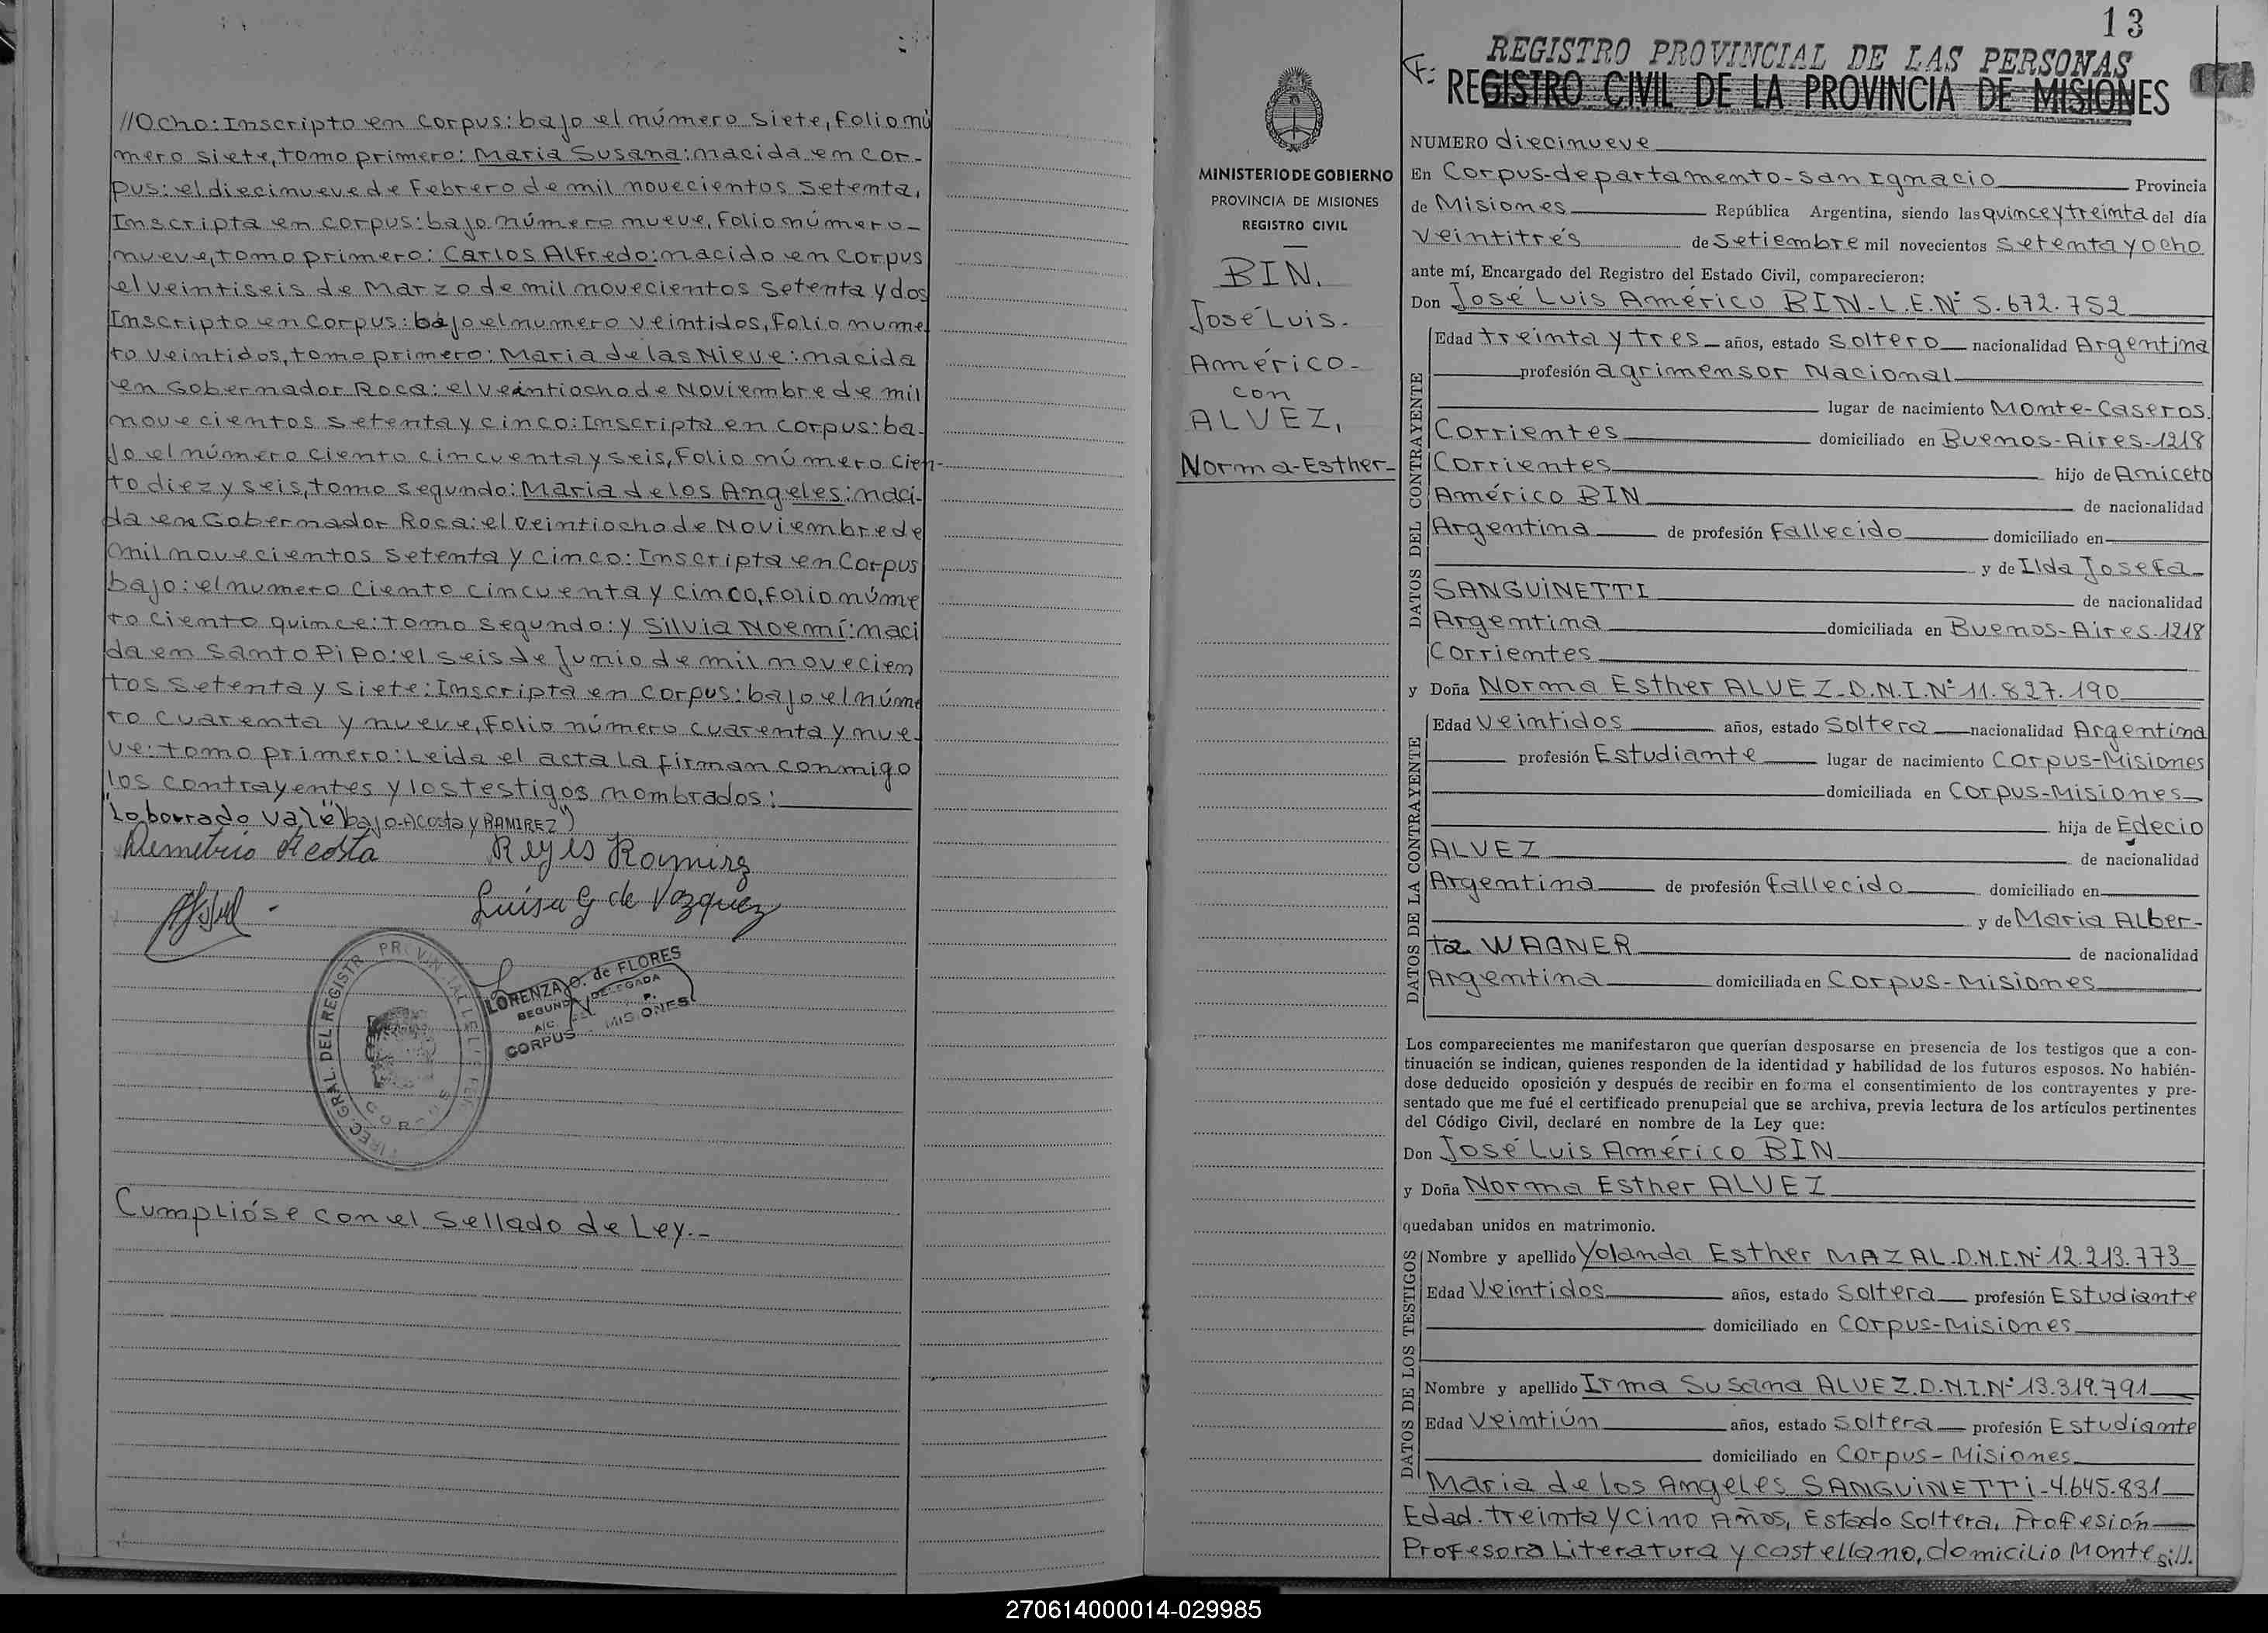 //Ocho: Inscripto en Corpus: bajo el número siete, Folio nú
mero siete, tomo primero: Maria Susana: nacida en Cor-
pus: el diecinueve de Febrero de mil novecientos setenta,
Inscripta en Corpus: bajo número nueve, Folio número-
nueve, tomo primero: Carlos Alfredo: nacido en Corpus
el veintiseis de Marzo de mil novecientos setenta y dos
Inscripto en Corpus: bajo el numero veintidos, Folio nume
ro veintidos, tomo primero: Maria de las Nieve: nacida
en Gobernador Roca: el veintiocho de Noviembre de mil
novecientos setenta y cinco: Inscripta en Corpus: ba-
jo el número ciento cincuenta y seis, Folio número cien-
to diez y seis, tomo segundo: Maria de los Angeles: naci-
da en Gobernador Roca: el veintiocho de Noviembre de
mil novecientos setenta y cinco: Inscripta en Corpus
bajo: el numero ciento cincuenta y cinco, Folio núme
ro ciento quince: tomo segundo: y Silvia Noemí: naci
da en Santo Pipo: el seis de Junio de mil novecien
tos setenta y siete: Inscripta en Corpus: bajo el núme
ro cuarenta y nueve, Folio número cuarenta y nue-
ve: tomo primero: Leida el acta la firman conmigo
los contrayentes y los testigos nombrados:
"Lo borrado vale" (bajo-Acosta y RAMIREZ")
Demetrio Acosta
Reyes Ramirez
Luisa G de Vazquez
LORENZA O. de FLORES
SEGUNDA DELEGADA
A/C.
CORPUS - MISIONES
DIREC. GRAL. DEL REGISTR PROVINCIAL
CORPUS
Cumplióse con el Sellado de Ley.-
13
REGISTRO PROVINCIAL DE LAS PERSONAS
REGISTRO CIVIL DE LA PROVINCIA DE MISIONES
171
MINISTERIO DE GOBIERNO
PROVINCIA DE MISIONES
REGISTRO CIVIL
BIN,
José Luis-
Américo-
con
ALVEZ,
Norma-Esther-
NUMERO diecinueve
En Corpus-departamento-san Ignacio Provincia
de Misiones República Argentina, siendo las quince y treinta del día
veintitrés de setiembre mil novecientos setenta y ocho
ante mí, Encargado del Registro del Estado Civil, comparecieron:
Don José Luis Américo BIN-L.E.Nº 5.672.752
DATOS DEL CONTRAYENTE
Edad treinta y tres años, estado soltero nacionalidad Argentina
profesión agrimensor Nacional
lugar de nacimiento Monte-Caseros.
Corrientes domiciliado en Buenos-Aires-1218
Corrientes hijo de Aniceto
Américo BIN de nacionalidad
Argentina de profesión Fallecido domiciliado en
y de Ilda Josefa-
SANGUINETTI de nacionalidad
Argentina domiciliada en Buenos-Aires-1218
Corrientes
y Doña Norma Esther ALVEZ-D.N.I.Nº 11.827.190
DATOS DE LA CONTRAYENTE
Edad veintidos años, estado soltera nacionalidad Argentina
profesión Estudiante lugar de nacimiento Corpus-Misiones
domiciliada en Corpus-Misiones
hija de Edecio
ALVEZ de nacionalidad
Argentina de profesión Fallecido domiciliado en
y de Maria Alber-
ta WAGNER de nacionalidad
Argentina domiciliada en Corpus-Misiones
Los comparecientes me manifestaron que querían desposarse en presencia de los testigos que a con-
tinuación se indican, quienes responden de la identidad y habilidad de los futuros esposos. No habién-
dose deducido oposición y después de recibir en forma el consentimiento de los contrayentes y pre-
sentado que me fué el certificado prenupcial que se archiva, previa lectura de los artículos pertinentes
del Código Civil, declaré en nombre de la Ley que:
Don José Luis Américo BIN
y Doña Norma Esther ALVEZ
quedaban unidos en matrimonio.
DATOS DE LOS TESTIGOS
Nombre y apellido Yolanda Esther MAZAL.D.N.I.Nº 12.213.773
Edad Veintidos años, estado soltera profesión Estudiante
domiciliado en Corpus-Misiones
Nombre y apellido Irma Susana ALVEZ.D.N.I.Nº 13.319.791
Edad Veintiún años, estado soltera profesión Estudiante
domiciliado en Corpus-Misiones
Maria de los Angeles SANGUINETTI-4.645.831
Edad. treinta y cino Años, Estado soltera, Profesión
Profesora Literatura y castellano, domicilio Monte s://.
270614000014-029985